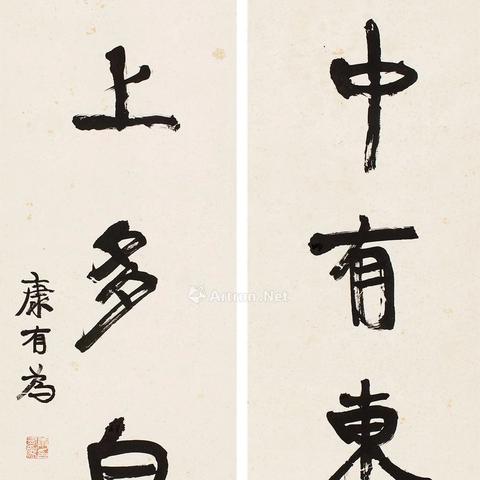 中有東
上多白
康有為
Artron.Net